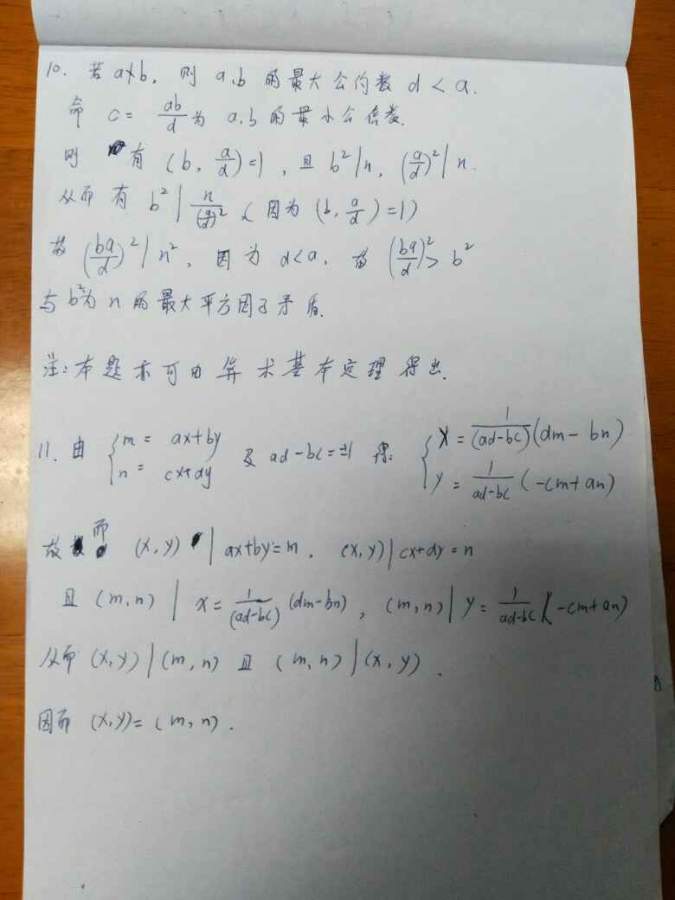 10. 若 a∤b, 则 a,b 的最大公约数 d < a.
命 c = ab/d 为 a,b 的最小公倍数.
则 有 (b, a/d)=1, 且 b²|n, (a/d)²|n.
从而有 b² | n/(a/d)² (因为 (b, a/d)=1)
故 (ba/d)² | n², 因为 d<a, 故 (ba/d)² > b²
与 b²为 n 的最大平方因子矛盾.
注: 本题亦可由算术基本定理得出.
11. 由 { m = ax+by n = cx+dy 及 ad-bc=±1 得: { x = 1/(ad-bc) (dm-bn) y = 1/ad-bc (-cm+an)
故 而 (x,y) | ax+by=m. (x,y)|cx+dy=n
且 (m,n) | x = 1/(ad-bc) (dm-bn), (m,n) | y = 1/ad-bc (-cm+an)
从而 (x,y)|(m,n) 且 (m,n)|(x,y).
因而 (x,y)=(m,n).